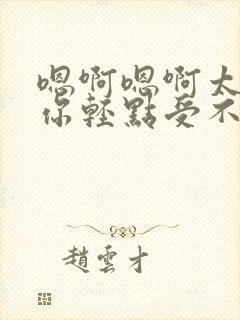 嗯啊嗯啊太
你輕點受不
趙雲才